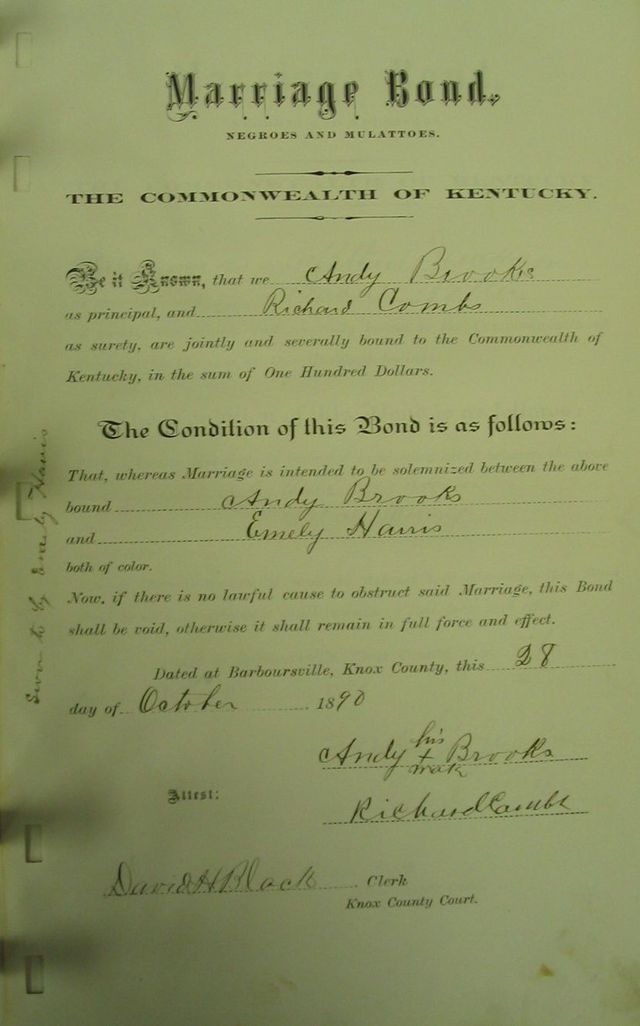 Marriage Bond,
NEGROES AND MULATTOES.
THE COMMONWEALTH OF KENTUCKY.
Be it Known, that we Andy Brooks
as principal, and Richard Combs
as surety, are jointly and severally bound to the Commonwealth of
Kentucky, in the sum of One Hundred Dollars.
The Condition of this Bond is as follows:
That, whereas Marriage is intended to be solemnized between the above
bound Andy Brooks
and Emely Harris
both of color.
Now, if there is no lawful cause to obstruct said Marriage, this Bond
shall be void, otherwise it shall remain in full force and effect.
Dated at Barboursville, Knox County, this 28
day of October 1890
Andy his x mark Brooks
Attest:
Richard Combs
David H Black Clerk
Knox County Court.
Sworn to by Emely Harris